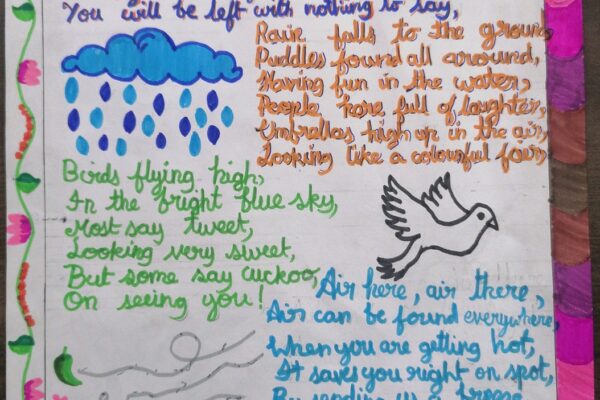 You will be left with nothing to say,
Rain falls to the ground,
Puddles found all around,
Having fun in the water,
People here full of laughter,
Umbrellas high up in the air,
Looking like a colourful fair,
Birds flying high,
In the bright blue sky,
Most say tweet,
Looking very sweet,
But some say cuckoo,
On seeing you!
Air here, air there,
Air can be found everywhere,
When you are getting hot,
It saves you right on spot,
By sending us a breeze